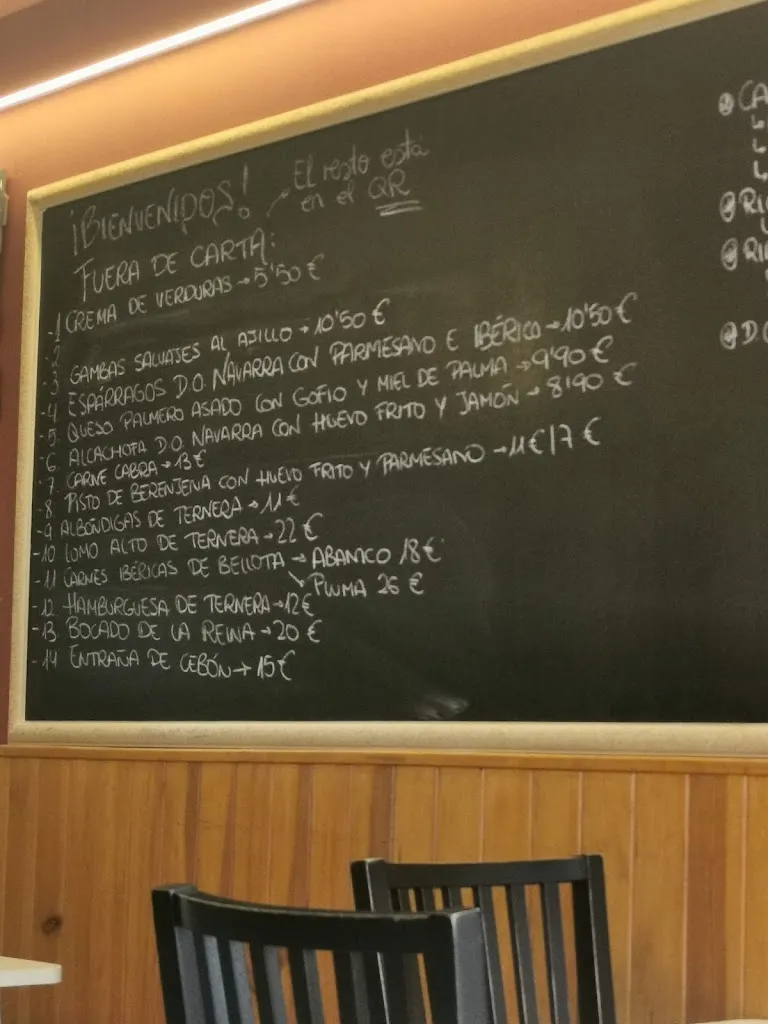 ¡BIENVENIDOS!
El resto está
en el QR
FUERA DE CARTA:
-1 CREMA DE VERDURAS → 5'50 €
2
-3 GAMBAS SALVAJES AL AJILLO → 10'50 €
-4 ESPÁRRAGOS D.O. NAVARRA CON PARMESANO E IBÉRICO → 10'50 €
-5. QUESO PALMERO ASADO CON GOFIO Y MIEL DE PALMA → 9'90 €
-6. ALCACHOFA D.O. NAVARRA CON HUEVO FRITO Y JAMÓN → 8'90 €
-7 CARNE CABRA → 13 €
-8 PISTO DE BERENJENA CON HUEVO FRITO Y PARMESANO → 11€/7 €
-9 ALBÓNDIGAS DE TERNERA → 11 €
-10 LOMO ALTO DE TERNERA → 22 €
-11 CARNES IBÉRICAS DE BELLOTA → ABANICO 18 €
↘ PLUMA 26 €
-12 HAMBURGUESA DE TERNERA → 12€
-13. BOCADO DE LA REINA → 20 €
-14 ENTRAÑA DE CEBÓN → 15 €
CA
RI
D.